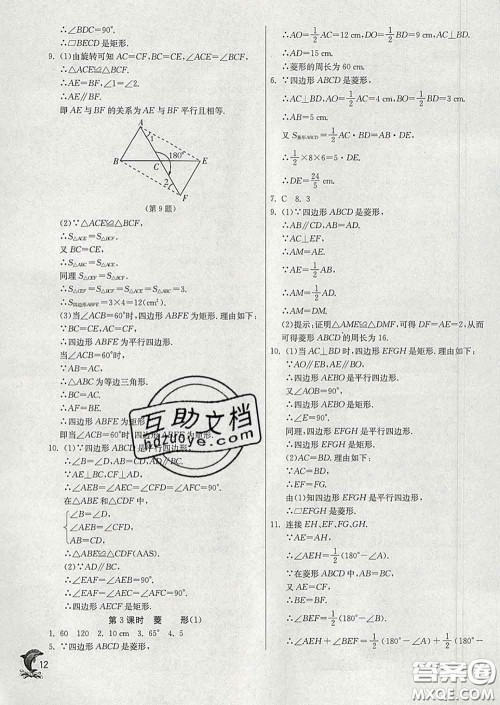 ∴∠BDC=90°.
∴□BECD是矩形.
9. (1)由旋转可知 AC=CF,BC=CE,∠ACE=∠BCF,
∴△ACE≌△BCF.
∴AE=BF,∠1=∠2.
∴AE∥BF.
即 AE 与 BF 的关系为 AE 与 BF 平行且相等.
A
1
180°
B
C
E
2
F
(第 9 题)
(2)∵△ACE≌△BCF,
∴S△ACE=S△BCF.
又 BC=CE,
∴S△ABC=S△ACE.
同理 S△CEF=S△BCF.
∴S△CEF=S△BCF=S△ACE=S△ABC=3.
∴S四边形ABFE=3×4=12(cm²).
(3)当∠ACB=60°时,四边形 ABFE 为矩形. 理由如下:
∵BC=CE,AC=CF,
∴四边形 ABFE 为平行四边形.
当∠ACB=60°时,
∵AB=AC,
∴△ABC 为等边三角形.
∴BC=AC.
∴AF=BE.
∴四边形 ABFE 为矩形.
即当∠ACB=60°时,四边形 ABFE 为矩形.
10. (1)∵四边形 ABCD 是平行四边形,
∴∠B=∠D,AD∥BC.
∵AE⊥BC,CF⊥AD,
∴∠AEB=∠AEC=∠CFD=∠AFC=90°.
在△ABE 和△CDF 中,
∠B=∠D,
∠AEB=∠CFD,
AB=CD,
∴△ABE≌△CDF(AAS).
(2)∵AD∥BC,
∴∠EAF=∠AEB=90°.
∴∠EAF=∠AEC=∠AFC=90°.
∴四边形 AECF 是矩形.
第 3 课时 菱 形(1)
1. 60 120 2. 10 cm 3. 65° 4. 5
5. ∵四边形 ABCD 是菱形,
12
∴AO=1/2 AC=12 cm,BO=1/2 BD=9 cm,AC⊥BD.
∴AD=15 cm.
∴菱形的周长为 60 cm.
6. ∵四边形 ABCD 是菱形,
∴AC⊥BD,AO=1/2 AC=4 cm,BO=1/2 BD=3 cm.
∴AB=5 cm.
又 S菱形ABCD=1/2 AC·BD=AB·DE.
∴1/2×8×6=5·DE.
∴DE=24/5 cm.
7. C 8. 3
9. (1)∵四边形 ABCD 是菱形,
∴AB∥CD,AB=AD.
∵AC⊥EF,
∴AE=AM.
∵AE=1/2 AB,
∴AM=1/2 AD.
∴AM=DM.
(2)提示:证明△AME≌△DMF,可得 DF=AE=2,从而
可得菱形 ABCD 的周长为 16.
10. (1)当 AC⊥BD 时,四边形 EFGH 是矩形. 理由如下:
∵AO∥EB,AE∥BO,
∴四边形 AEBO 是平行四边形.
∵AC⊥BD,
∴四边形 AEBO 是矩形.
∴∠E=90°.
同理,四边形 EFGH 是平行四边形.
∴四边形 EFGH 是矩形.
(2)AC=BD. 理由如下:
∵AC=EF,BD=FG,
∴EF=FG.
由(1)知四边形 EFGH 是平行四边形,
∴□EFGH 是菱形.
11. 连接 EH、EF、FG、GH.
∵AE=AH,
∴∠AEH=1/2(180°-∠A).
∵在菱形 ABCD 中,AB=BC,
又 AE=CF,
∴BE=BF.
∴∠BEF=1/2(180°-∠B).
∴∠AEH+∠BEF=1/2(180°-∠A)+1/2(180°-
互助文档
hdzuoye.com
答案圈
MXQE.COM